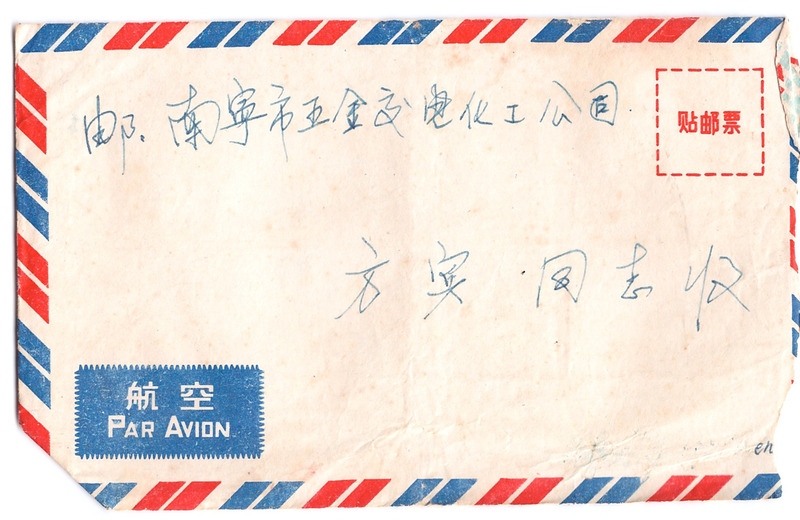 邮. 南宁市五金交电化工公司
贴邮票
方宾 同志收
航空
PAR AVION
en